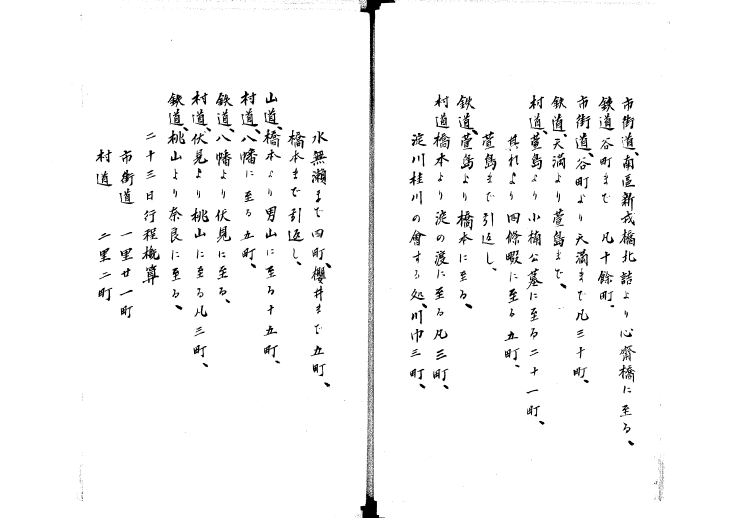 市街道、南區新戎橋北詰より心齋橋に至る、
鉄道谷町まで 凡十餘町、
市街道、谷町より天満まで凡三十町、
鉄道、天満より萱島まで、
村道萱島より小楠公墓に至る二十一町、
其れより四條畷に至る五町、
萱島まで引返し、
鉄道、萱島より橋本に至る、
村道橋本より淀の渡に至る凡三町、
淀川桂川の會する処、川巾三町、
水無瀬まで四町、櫻井まで五町、
橋本まで引返し、
山道、橋本より男山に至る十五町、
村道、八幡に至る五町、
鉄道、八幡より伏見に至る、
村道、伏見より桃山に至る凡三町、
鉄道、桃山より奈良に至る、
二十三日行程概算
市街道 一里廿一町
村道 二里二町